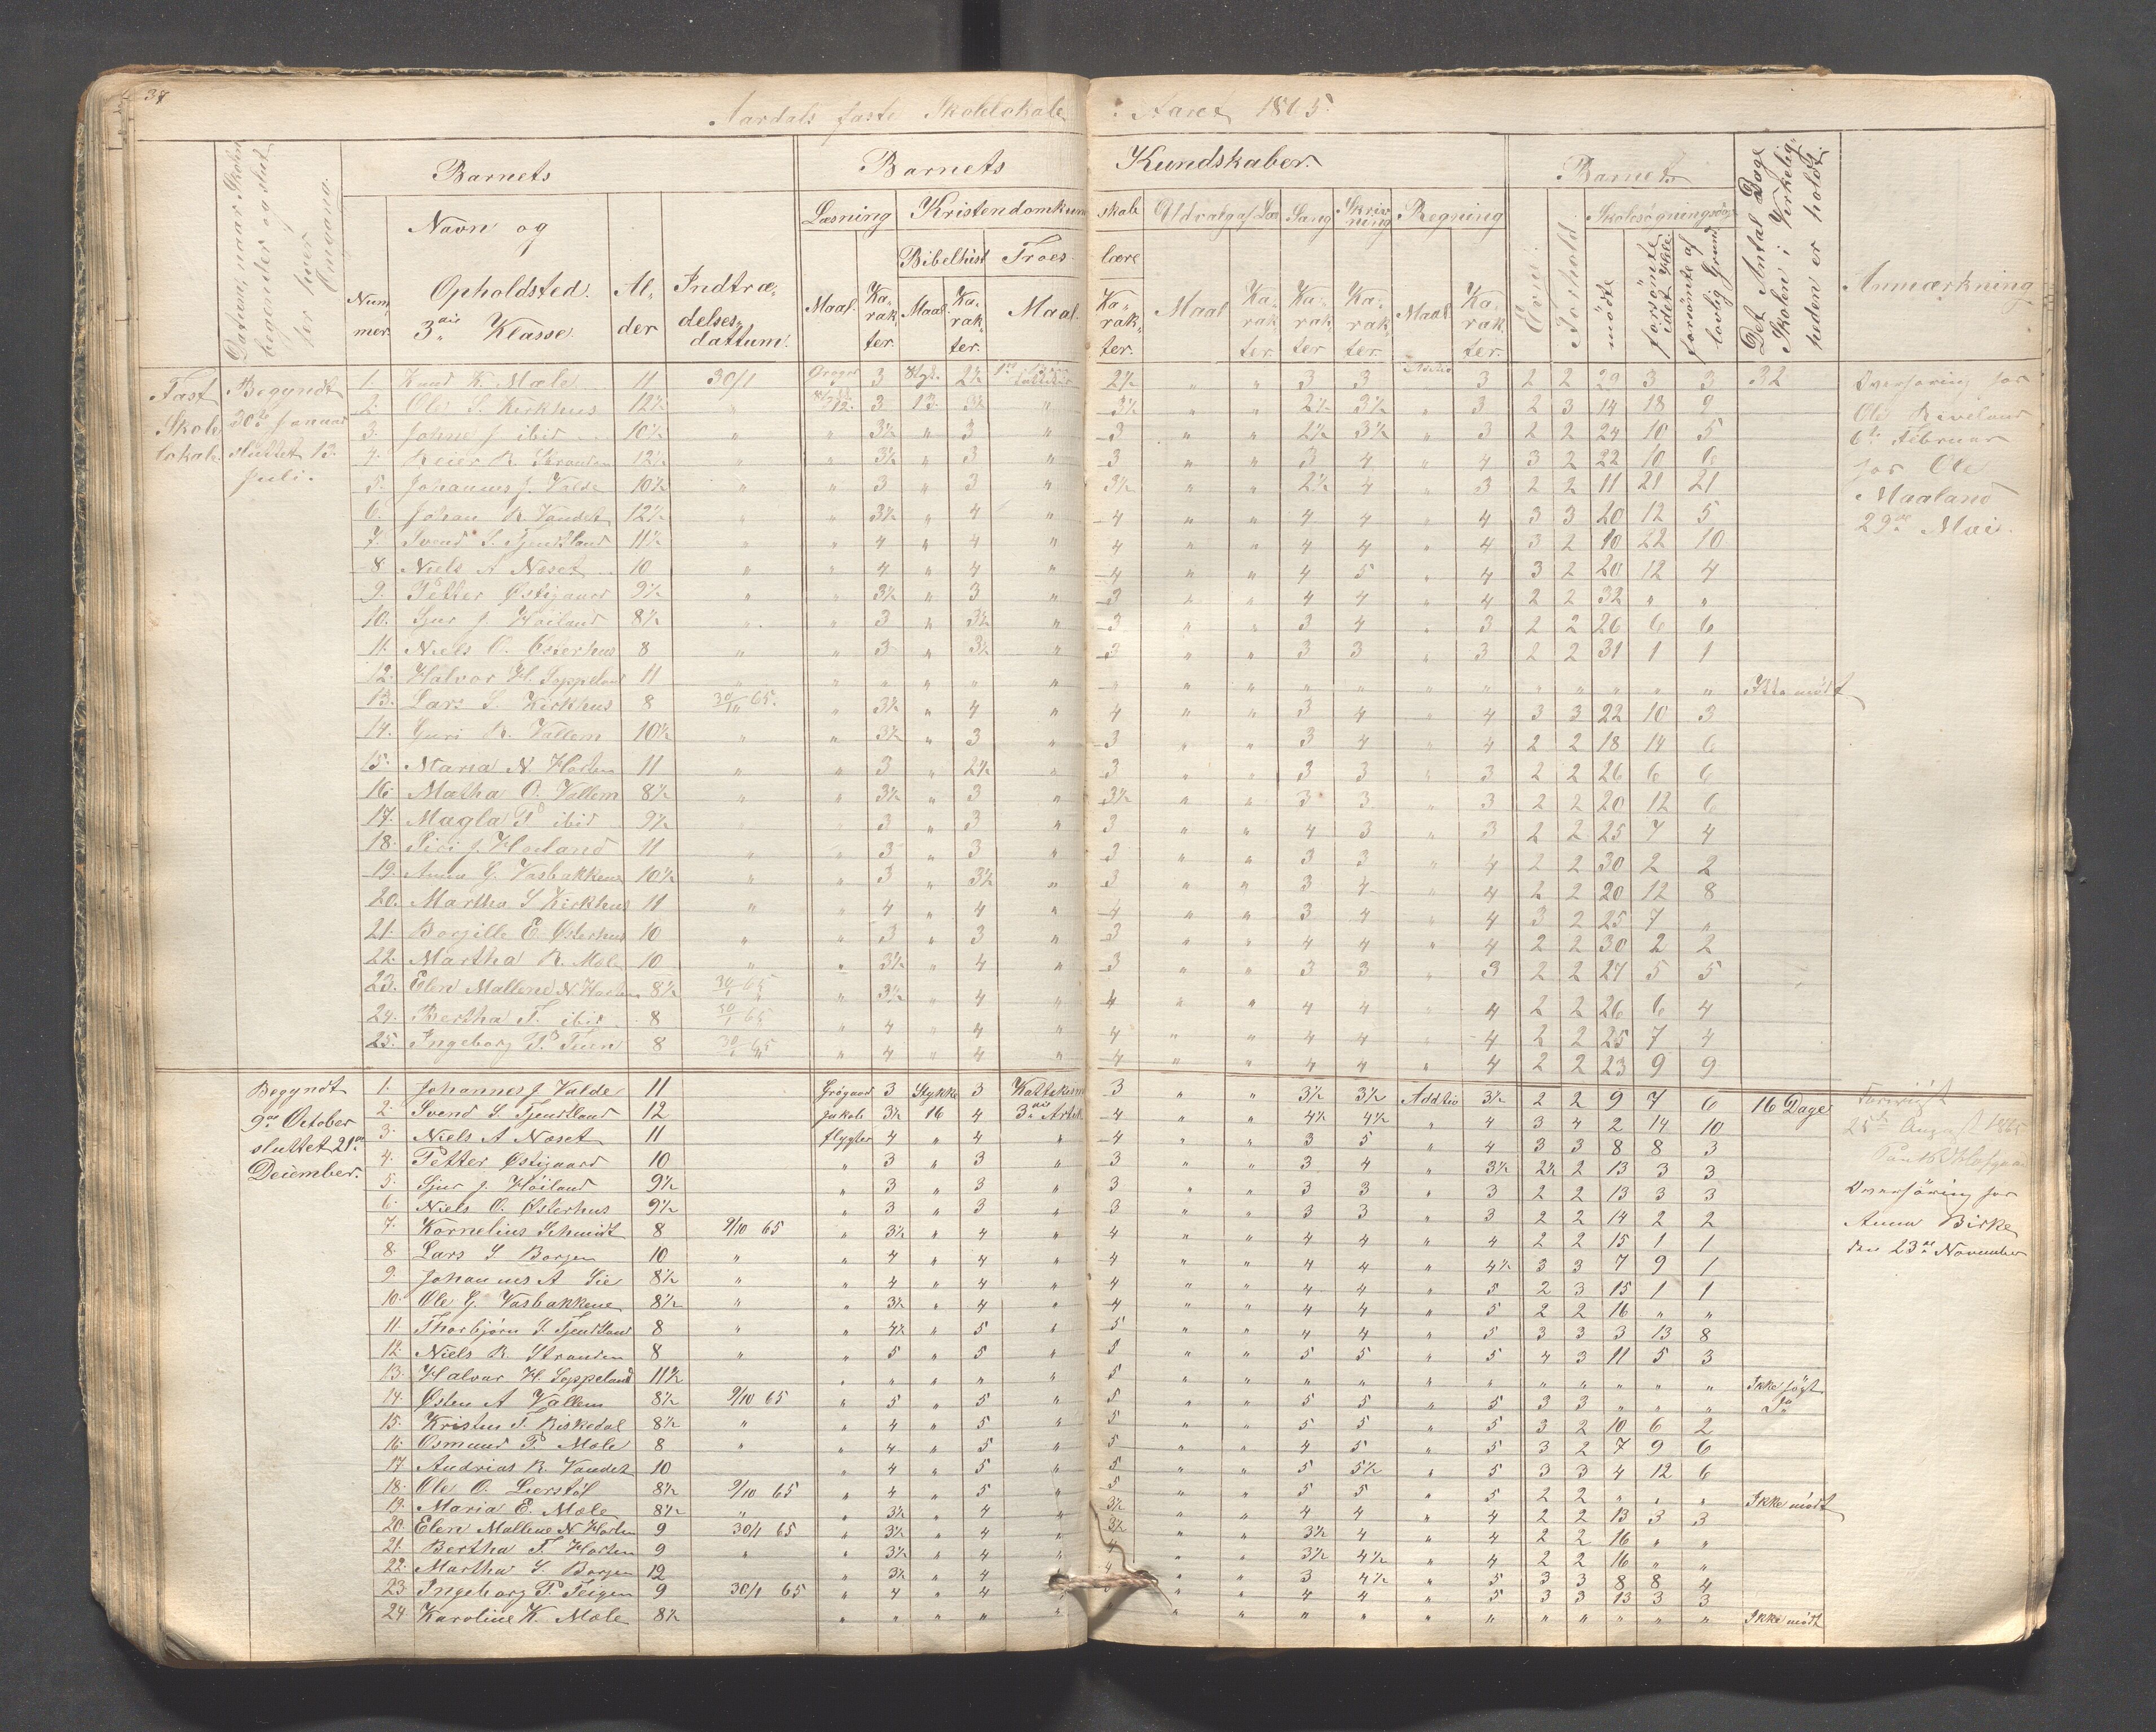 37
Aardals faste Skolelokale
i Aaret 1865.
Datum, naar Skolen begynder og slut- ter hver Omgang.
Barnets
Barnets
Kundskaber.
Barnets
Det Antal Dage Skolen i Virkelig- heden er holdt.
Anmærkning
Num- mer
Navn og Opholdsted. 3die Klasse.
Al- der
Indtræ- delses- dattum.
Læsning
Kristendomkun
skab
Udvalg af Læs
Sang
Skriv- ning
Regning
Evne.
Forhold.
Skolesøgningsdage
Bibelhist
Troes
lære
Maal.
Ka- rak- ter.
Maal.
Ka- rak- ter.
Maal.
Ka- rak- ter.
Maal
Ka- rak- ter.
Ka- rak- ter
Ka- rak- ter.
Maal
Ka- rak- ter.
mødte
forsømte
forsømte af lovlig Grund
Fast Skole lokale
Begyndt 30te Januar sluttet 13. Juli.
1. Knud K. Mæle 11 30/1 3 2½ 2½ " " 3 3 3 2 2 29 3 3 32
2. Ole S. Kirkhus 12½ " 12. 3 13. 3½ " 3½ " " 2½ 3½ " 3 2 3 14 18 9
3. Johne J ibid 10½ " " 3½ " 3 " 3 " " 2½ 3½ " 3 2 2 24 10 5
4. Reier R. Stranden 12½ " " 3½ " 3 " 3 " " 3 4 " 4 3 2 22 10 6
5. Johannes J. Valde 10½ " " 3 " 3 " 3½ " " 2½ 4 " 3 2 2 11 21 21
6. Johan R. Vandet 12½ " " 3½ " 4 " 4 " " 4 4 " 4 3 3 20 12 5
7. Svend S. Tjentland 11½ " " 4 " 4 " 4 " " 4 4 " 4 3 2 10 22 10
8 Niels A Næset 10 " " 4 " 4 " 4 " " 4 5 " 4 3 2 20 12 4
9. Petter Østigaard 9½ " " 3½ " 3 " 3 " " 4 4 " 4 2 2 32 " "
10. Sjur J. Høiland 8½ " " 3 " 3½ " 3 " " 3 4 " 3 2 2 26 6 6
11. Niels O. Østerhus 8 " " 3 " 3½ " 3 " " 3 3 " 3 2 2 31 1 1
12. Halvor H. Soppeland 11 " " " " " " " " " " " " " " " " " " Ikke mødt
13. Lars S. Kirkhus 8 65. " 3½ " 4 " 4 " " 3 4 " 4 3 3 22 10 3
14. Guri R. Vallem 10½ " " 3½ " 3 " 3 " " 3 4 " 4 2 2 18 14 6
15. Maria N Horten 11 " " 3 " 2½ " 3 " " 3 3 " 3 2 2 26 6 6
16 Matha O. Vallem 8½ " " 3½ " 3 " 3½ " " 3 3 " 3 2 2 20 12 6
17. Magla P ibid 9½ " " 3 " 3 " 3 " " 4 3 " 3 2 2 25 7 4
18. Siri J. Høiland 11 " " 3 " 3 " 3 " " 3 3 " 4 2 2 30 2 2
19. Anna G. Vasbakkene 10½ " " 3 " 3½ " 3 " " 3 4 " 4 2 2 20 12 8
20. Martha S Kirkhus 11 " " 4 " 4 " 4 " " 3 4 " 4 3 2 25 7 "
21. Borgille E. Østerhus 10 " " 3 " 3 " 3 " " 4 4 " 4 2 2 30 2 2
22. Martha R. Mæle 10 " " 3½ " 4 " 3 " " 3 3 " 3 2 2 27 5 5
23. Elen Mallene N Horten 8½ 30/1 65 " 3½ " 4 " 4 " " 4 4 " 4 2 2 26 6 4
24. Bertha T. ibid 8 30/1 65 " 4 " 4 " 4 " " 4 4 " 4 2 2 25 7 4
25. Ingeborg P. Teien 8 30/1 65 " 4 " 4 " 4 " " 4 4 " 4 2 2 23 9 9
Overhøring for
Ole Riveland
6te Februar
for Ole
Maaland
29de Mai.
Begyndt 9de October sluttet 21de December.
1. Johannes J Valde 11 Grøgaard 3 Stykke 3 Kattekesm 3 " " 3½ 3½ Addtio 3½ 2 2 9 7 6 16 Dage
2. Svend S Tjentland 12 Jakob 3½ 16 4 3die Artik. 4 " " 4½ 4½ " 4 3 4 2 14 10
3. Niels A Næset 11 flygter 4 " 4 " 4 " " 3 5 " 4 3 3 8 8 3
4. Petter Østigaard 10 " 3 " 3 " 3 " " 3 4 " 3½ 2½ 2 13 3 3
5. Sjur J. Høiland 9½ " 3 " 3 " 3 " " 3 3 " 3 2 2 13 3 3
6. Niels O. Østerhus 9½ " 3 " 3 " 3 " " 3 3 " 3 2 2 14 2 2
7. Kornelius Schmidt 8 9/10 65 " 3½ " 4 " 4 " " 4 4 " 4 2 2 15 1 1
8. Lars S Borgen 10 " " 4 " 4 " 4 " " 4 4 " 4½ 3 3 7 9 1
9. Johannes A Lie 8½ " " 4 " 4 " 4 " " 4 4 " 5 2 3 15 1 1
10. Ole G. Vasbakkene 8½ " " 3½ " 4 " 4 " " 4 4 " 5 2 2 16 " "
11. Thorbjørn S. Tjentland 8 " " 4½ " 5 " 5 " " 4 4 " 5 3 3 3 13 8
12. Niels R. Stranden 8 " " 5 " 5 " 5 " " 5 5 " 5 4 3 11 5 3
13. Halvar H. Soppeland 11½ " " " " " 5 " " " " " " " " " " " Ikke søgt
14. Østen A Vallem 8½ 9/10 65 " 5 " 5 " 5 " " 5 5 " 5 3 3 " " "
15. Kristen T. Riskedal 8½ " " 4 " 5 " 5 " " 5 5 " 5 3 2 10 6 2
16. Osmund P. Mæle 8 " " 4 " 5 " 5 " " 4 5 " 5 3 2 7 9 6
17 Andrias R. Vandet 10 " 4 " 5 " 5 " " 5 5½ " 5 3 3 4 12 6
18. Ole O. Lierstøl 8½ 9/10 65 " 4 " 5 " 5 " " 5 5 " 5 2 2 " " " Ikke mødt
19. Maria E. Mæle 8½ " " 3½ " 4 " 3½ " " 4 4 " 4 2 2 13 3 3
20. Elen Mallene N Horten 9 30/1 65 " 3½ " 4 " 3½ " " 3½ 4 " 4 2 2 16 " "
21. Bertha T. Horten 9 " " 3½ " 4 " 4 " " 3½ 4½ " 4 2 2 16 " "
22. Martha S. Borgen 12 " 3½ " 4 " 4 " " 3 4½ " 5 3 3 8 8 4
23 Ingeborg P. Teigen 9 30/1 65 " 4 " 4 " " " 4 4 " 5 3 3 13 3 3
24 Karoline K. Mæle 8½ " " " " " " " " " " " " " " " " Ikke mødt
25de August 1865
Overhøring for
Anna Birke
den 23de November